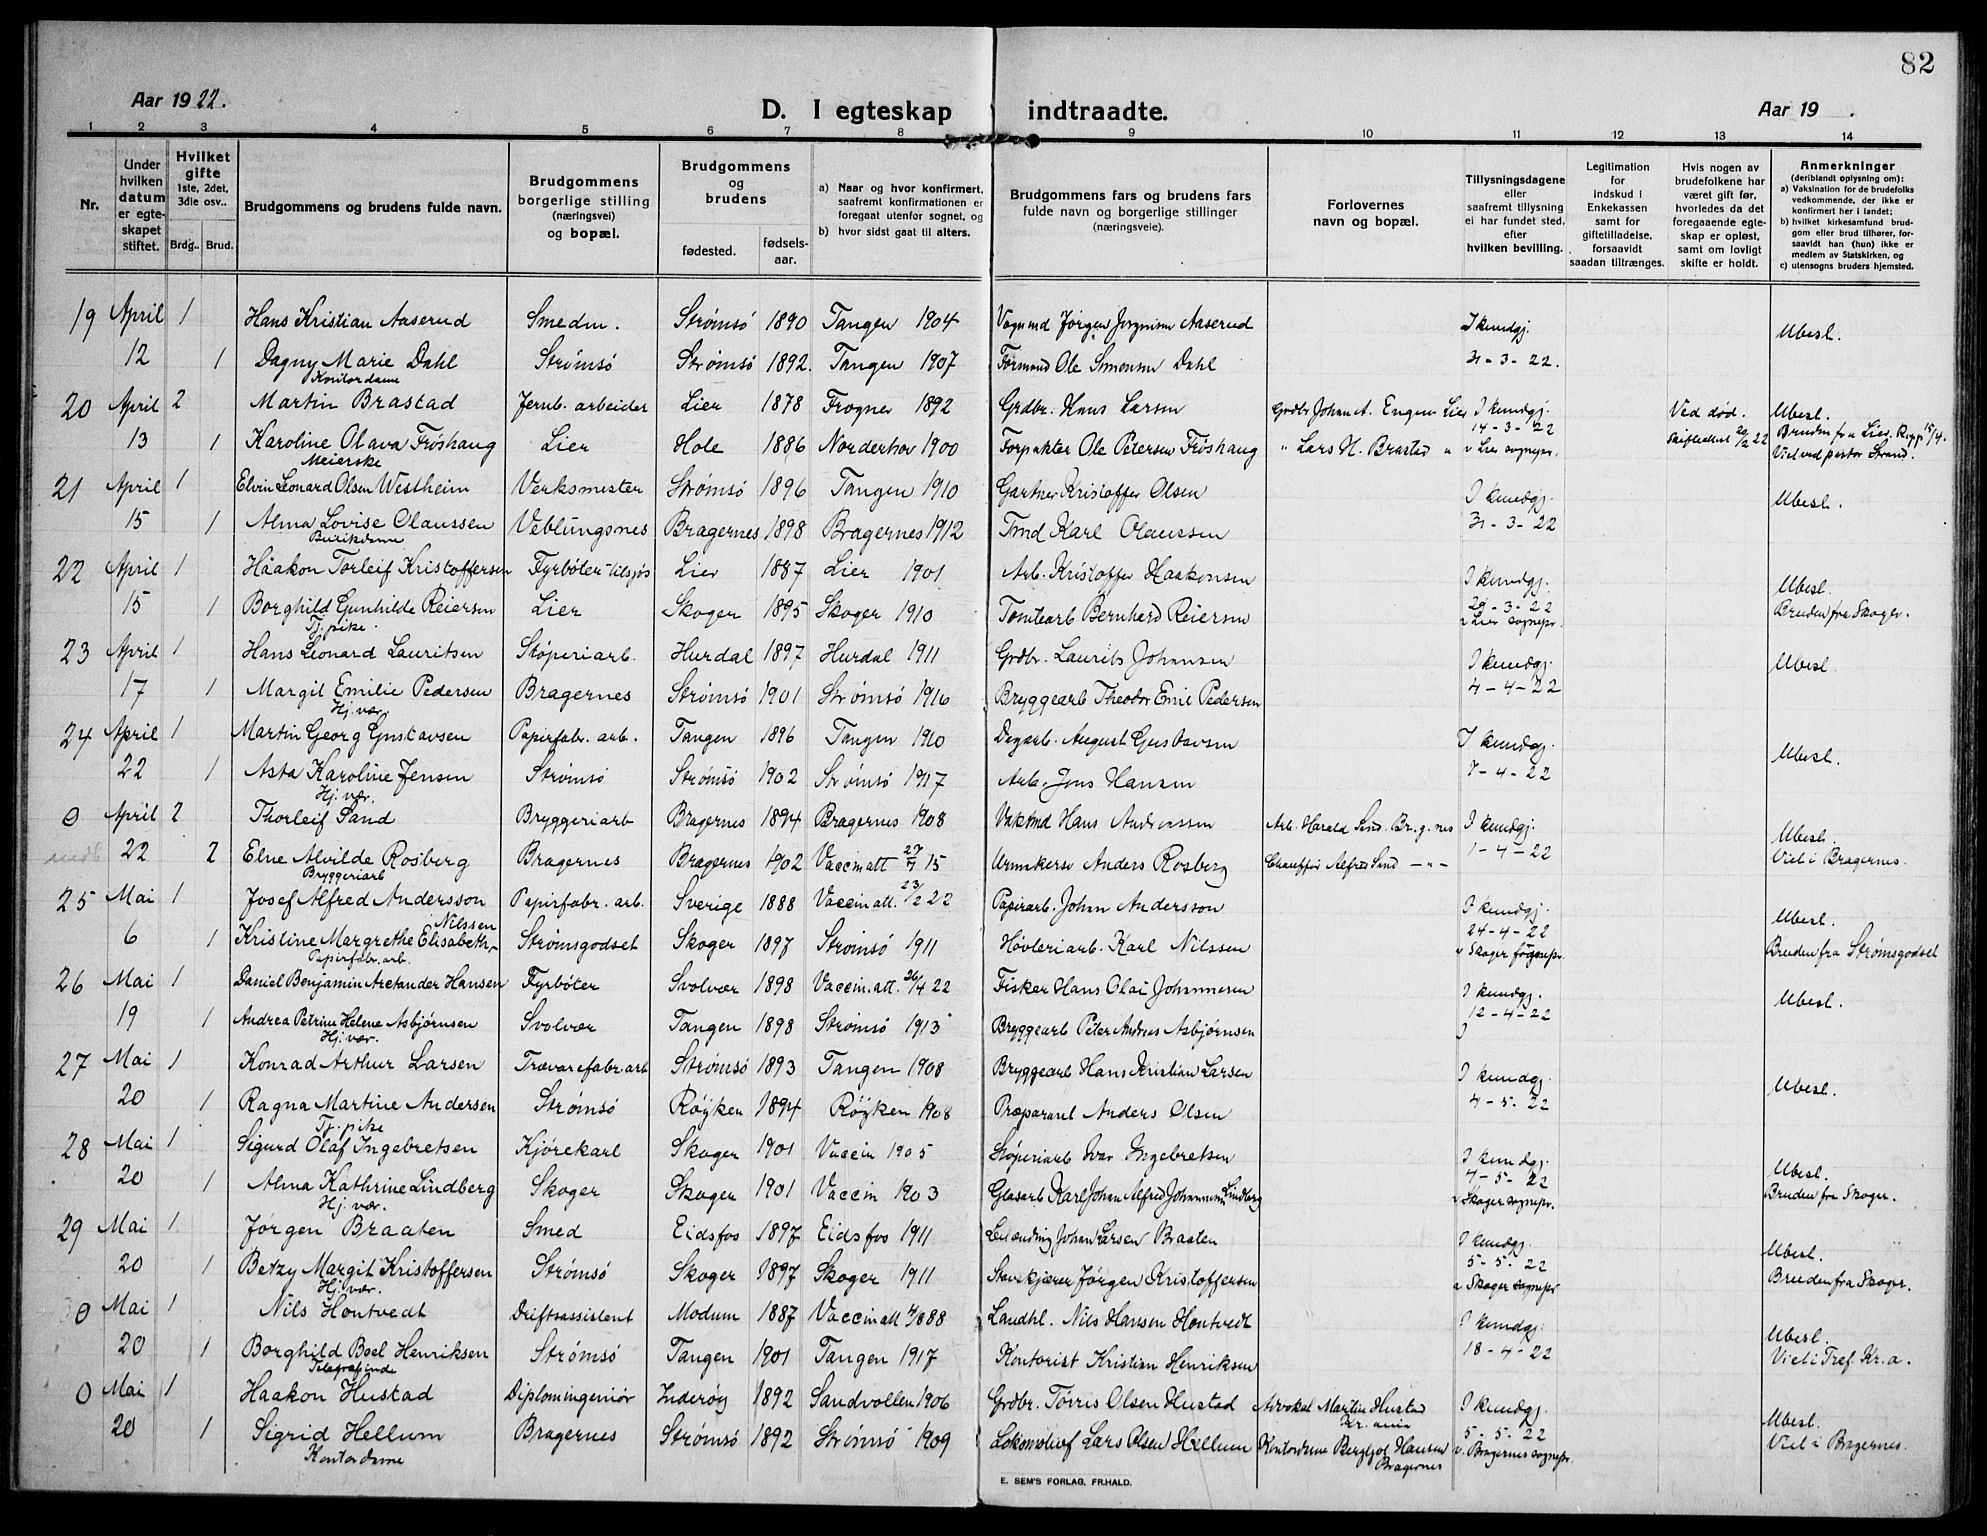 82
Aar 1922.
D. I egteskap indtraadte.
Aar 19 .
1 2 3 4 5 6 7 8 9 10 11 12 13 14
Nr.
Under hvilken datum er egteskapet stiftet.
Hvilket gifte 1ste, 2det, 3die osv..
Brdg. Brud.
Brudgommens og brudens fulde navn.
Brudgommens borgerlige stilling (næringsvei) og bopæl.
Brudgommens og brudens
fødested. fødselsaar.
a) Naar og hvor konfirmert, saafremt konfirmationen er foregaat utenfor sognet, og
b) hvor sidst gaat til alters.
Brudgommens fars og brudens fars fulde navn og borgerlige stillinger (næringsveie).
Forlovernes navn og bopæl.
Tillysningsdagene eller saafremt tillysning ei har fundet sted, efter hvilken bevilling.
Legitimation for indskud i Enkekassen samt for giftetilladelse, forsaavidt saadan tiltrænges.
Hvis nogen av brudefolkene har været gift før, hvorledes da det foregaaende egteskap er opløst, samt om lovligt skifte er holdt.
Anmerkninger (deriblandt oplysning om):
a) Vaksination for de brudefolks vedkommende, der ikke er konfirmert her i landet;
b) hvilket kirkesamfund brudgom eller brud tilhører, forsaavidt han (hun) ikke er medlem av Statskirken, og
c) utensogns bruders hjemsted.
19 April 1 Hans Kristian Aaserud Smedm. Strømsø 1890 Tangen 1904 Vognmd Jørgen Jørgensen Aaserud I kundgj. Ubesl.
12 1 Dagny Marie Dahl Strømsø Strømsø 1892. Tangen 1907 Formand Ole Simonsen Dahl 31-3-22.
Kontordame
20 April 2 Martin Brastad Jernb. arbeider Lier 1878 Frogner 1892 Grdbr. Hans Larsen Grdbr Johan A. Engen Lier I kundgj. 14-3-22 Ved død. Ubesl.
13 1 Karoline Olava Frøshaug Lier Hole 1886 Norderhov 1900 Forpakter Ole Petersen Frøshaug " Lars H. Brastad " v Lier sognepr. Skifteattest 20/2 22 Bruden fra Lier. Rapp 15/4.
Meierske Viel ved pastor Strand.
21 April 1 Elvin Leonard Olsen Westheim Verksmester Strømsø 1896 Tangen 1910 Gartner Kristoffer Olsen I kundgj. Ubesl.
15 1 Alma Lovise Olaussen Veblungsnes Bragernes 1898 Bragernes 1912 Tmd Karl Olaussen 31-3-22
Butikdame
22 April 1 Haakon Torleif Kristoffersen Fyrbøter-tilsjøs Lier 1887 Lier 1901 Arb. Kristoffer Haakonsen I kundgj. Ubesl.
15 1 Borghild Gunhilde Reiersen Lier Skoger 1895 Skoger 1910 Tomtearb Bernhard Reiersen 29-3-22 Bruden fra Skoger.
Tj. pike. v Lier sognepr.
23 April 1 Hans Leonard Lauritsen Støperiarb. Hurdal 1897 Hurdal 1911 Grdbr. Laurits Johansen I kundgj. Ubesl.
17 1 Margit Emilie Pedersen Bragernes Strømsø 1901 Strømsø 1916 Bryggearb Theodor Emil Pedersen 4-4-22
Hj. vær.
24 April 1 Martin Georg Gustavsen Papirfabr. arb. Tangen 1896 Tangen 1910 Dagarb. August Gustavsen I kundgj. Ubesl.
22 1 Asta Karoline Jensen Strømsø Strømsø 1902 Strømsø 1917 Arb. Jens Hansen 7-4-22
Hj. vær.
0 April 2 Thorleif Sand Bryggeriarb Bragernes 1894 Bragernes 1908 Vaktmd Hans Andreassen Arb. Harald Sand Brag.nes I kundgj. Ubesl.
22 2 Elne Alvilde Rosberg Bragernes Bragernes 1902 Vaccinatt 27/7 15 Urmakersv Anders Rosberg Chauffør Alfred Sand -"- 1-4-22 Viel i Bragernes.
Bryggeriarb
25 Mai 1 Josef Alfred Andersson Papirfabr. arb. Sverige 1888 Vaccin att. 23/2 22 Papirarb. Johan Andersson I kundgj. Ubesl.
Nilssen
6 1 Kristine Margrethe Elisabeth Strømsgodset Skoger 1897 Strømsø 1911 Høvleriarb. Karl Nilssen 24-4-22 Bruden fra Strømsgodset
Papirfabr. arb. v Skoger sognepr.
26 Mai 1 Daniel Benjamin Aretander Hansen Fyrbøter Svolvær 1898 Vaccin. att. 26/4 22 Fisker Hans Olai Johannesen I kundgj. Ubesl.
19 1 Andrea Petrine Helene Asbjørnsen Svolvær Tangen 1898 Strømsø 1913 Bryggearb Peter Andreas Asbjørnsen 12-4-22
Hj. vær.
27 Mai 1 Konrad Arthur Larsen Trævarefabr. arb Strømsø 1893 Tangen 1908 Bryggearb Hans Kristian Larsen I kundgj. Ubesl.
20 1 Ragna Martine Andersen Strømsø Røyken 1894 Røyken 1908 Præparant Anders Olsen 4-5-22
Tj. pike
28 Mai 1 Sigurd Olaf Ingebretsen Kjørekarl Skoger 1901 Vaccin 1905 Støperiarb Ivar Ingebretsen I kundgj. Ubesl.
20 1 Alma Kathrine Lindberg Skoger Skoger 1901 Vaccin 1903 Glasarb Karl Johan Alfred Johannesen Lindberg 4-5-22 Bruden fra Skoger.
Hj. vær. v Skoger sognepr.
29 Mai 1 Jørgen Braaten Smed Eidsfos 1897 Eidsfos 1911 Leilænding Johan Larsen Braaten I kundgj. Ubesl.
20 1 Betzy Margit Kristoffersen Strømsø Skoger 1897 Skoger 1911 Stavkjører Jørgen Kristoffersen 5-5-22 Bruden fra Skoger.
Hj. vær. v Skoger sognepr
0 Mai 1 Nils Hontvedt Driftsassistent Modum 1887 Vaccinatt 4/8 88 Landhl. Nils Hansen Hontvedt I kundgj. Ubesl.
20 1 Borghild Boel Henriksen Strømsø Tangen 1901 Tangen 1917 Kontorist Kristian Henriksen 18-4-22 Viel i Tref. Kr.a.
Telegrafinde
0 Mai 1 Haakon Hustad Diplomingeniør Inderøy 1892 Sandvollen 1906 Grdbr. Tørris Olsen Hustad Advokat Martin Hustad Kr.ania I kundgj. Ubesl.
20 1 Sigrid Hellum Bragernes Strømsø 1892 Strømsø 1909 Lokomotivf Lars Olsen Hellum Kontordame Bergljot Hansen Bragernes 5-5-22 v. Bragernes sognepr. Viel i Bragernes.
Kontordame
E. SEM'S FORLAG, FR.HALD.